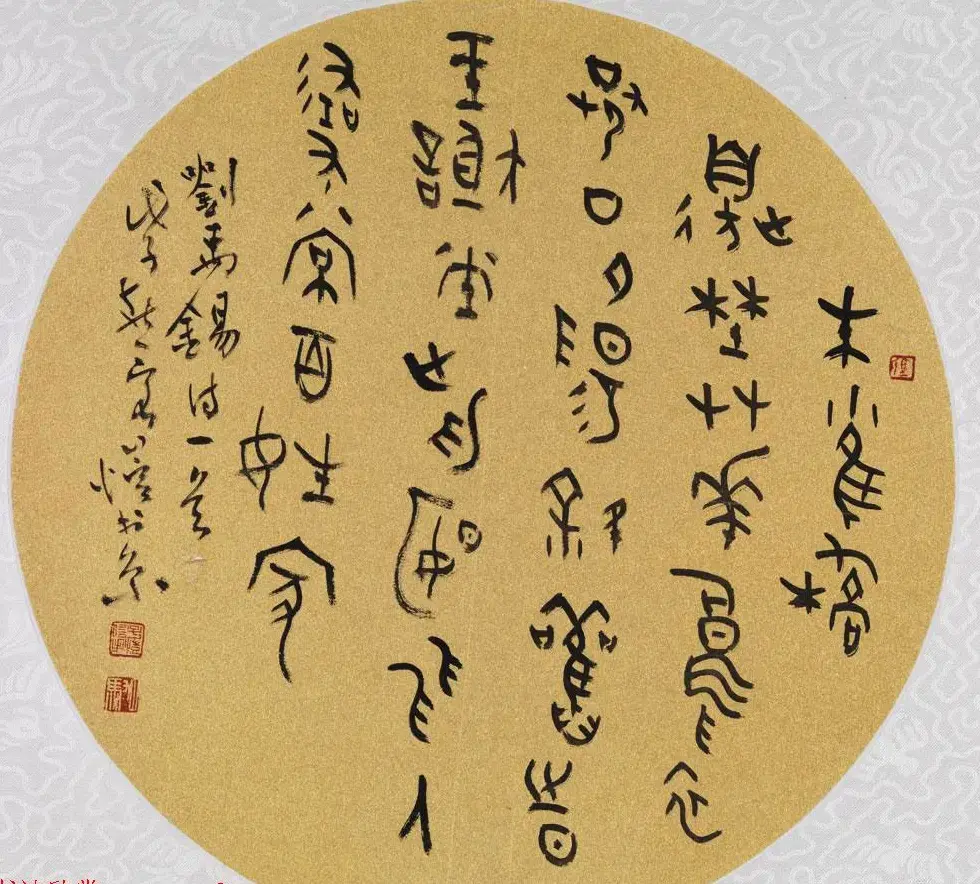 朱雀橋
邊野艸華烏衣
巷口夕陽斜舊時
王謝堂前燕飛入
尋常百姓家
劉禹錫詩一首
戊子